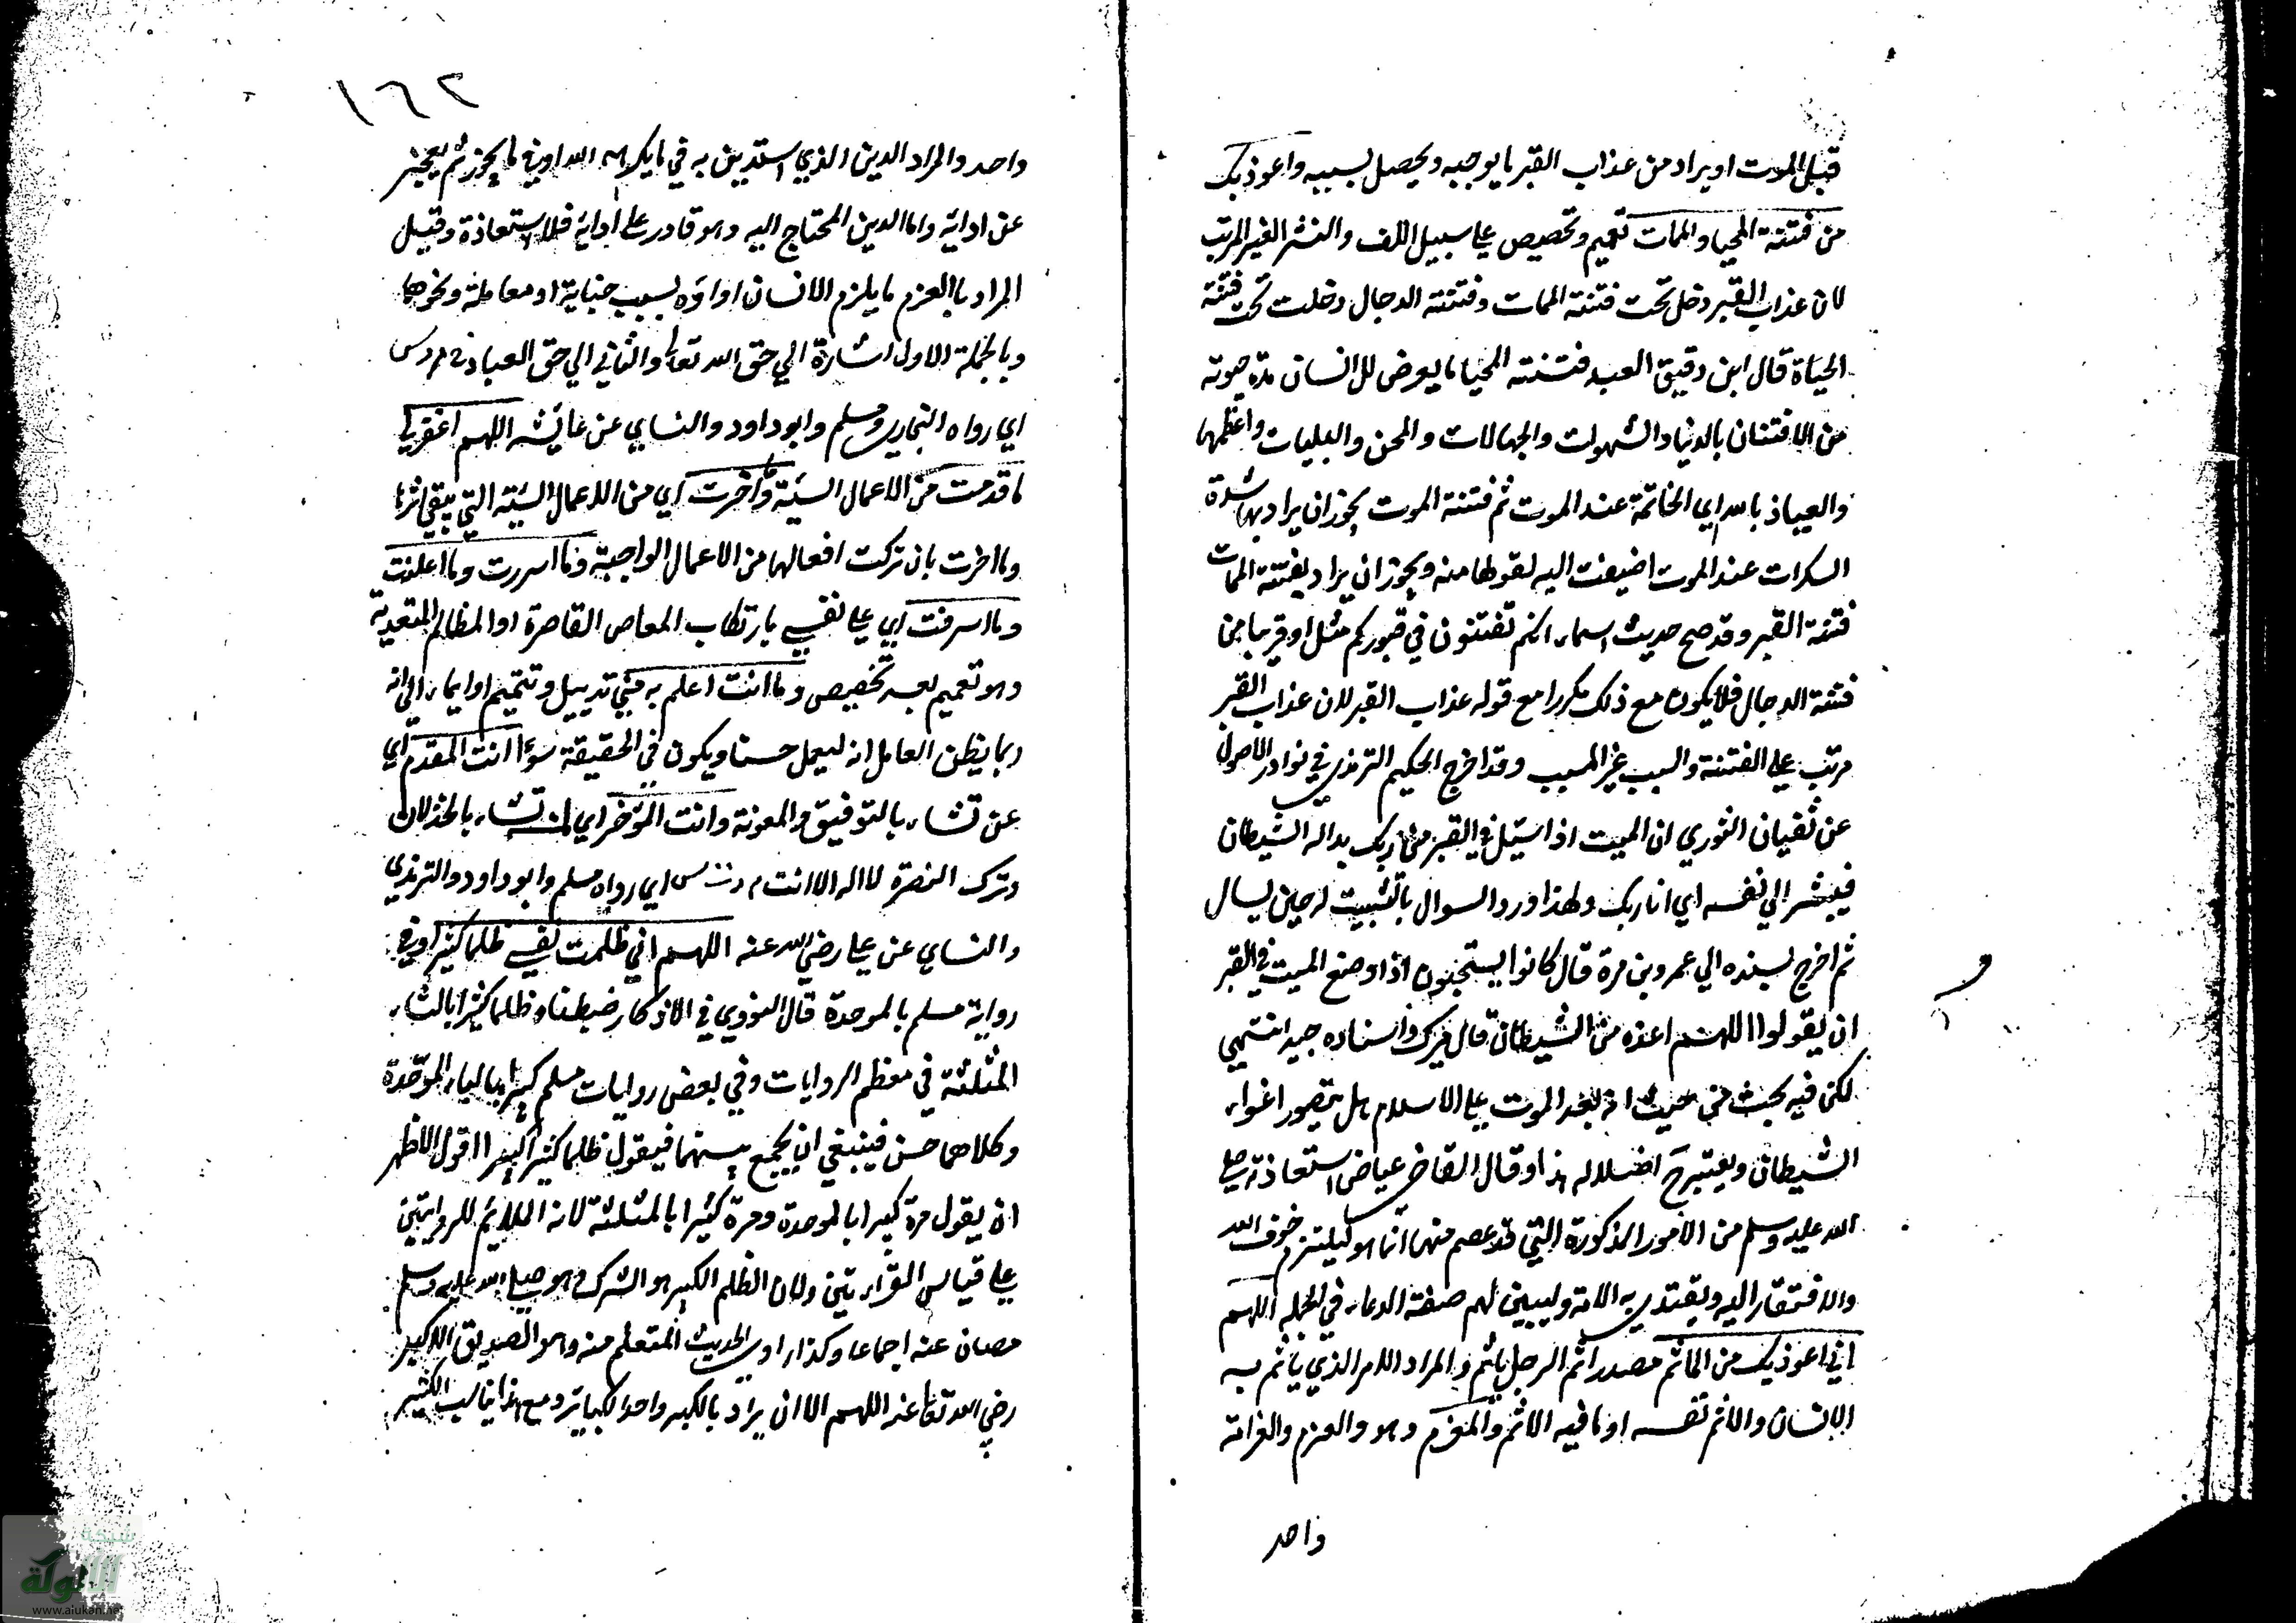 قبل الموت او يراد من عذاب القبر ما يوجبه ويحصل بسببه واعوذ بك
من فتنة المحيا والممات تعميم وتخصيص علي سبيل اللف والنشر الغير المرتب
لان عذاب القبر دخل تحت فتنة الممات وفتنة الدجال دخلت تحت فتنة
الحياة قال ابن دقيق العبد فتنة المحيا ما يعرض للانسان مدة حيوته
من الافتتان بالدنيا والشهوات والجهالات والمحن والبليات واعظمها
والعياذ بالله اي الخاتمة عند الموت ثم فتنة الموت يجوز ان يراد بها شدة
السكرات عند الموت اضيفت اليه لقولها منه ويجوز ان يراد بفتنة الممات
فتنة القبر وقد صح حديث اسماء انكم تفتنون في قبوركم مثل او قريبا من
فتنة الدجال فلا يكون مع ذلك مكررا مع قوله عذاب القبر لان عذاب القبر
مرتب علي الفتنة والسبب غير المسبب وقد اخرج الحكيم الترمذي في نوادر الاصول
عن سفيان الثوري ان الميت اذا سئل في القبر من ربك بدا له الشيطان
فيشر الي نفسه اي انا ربك ولهذا ورد السوال بالتثبيت له حين يسال
ثم اخرج بسنده الي عمرو بن مرة قال كانوا يستحبون اذا وضع الميت في القبر
ان يقولوا اللهم اعذه من الشيطان قال ميرك واسناده جيد انتهي
لكن فيه بحث من حيث انه بعد الموت علي الاسلام هل يتصور اغواء
الشيطان ويعتبرح اضلاله هذا وقال القاضي عياض استعاذته صلي
الله عليه وسلم من الامور المذكورة التي قد عصم منها انما هو ليلتزم خوف الله
والافتقار اليه ويقتدي به الامة وليبين لهم صفة الدعاء في الجملة اللهم
اني اعوذ بك من الماثم مصدر اثم الرجل ياثم والمراد الامر الذي ياثم به
الانسان والاثم نفسه او ما فيه الاثم والمغرم وهو والغرم والغرامة
واحد
١٦٢
واحد والمراد الدين الذي استدين به في ما يكره الله او في ما يجوز ثم يعجز
عن ادائه واما الدين المحتاج اليه وهو قادر علي ادائه فلا استعاذة وقيل
المراد بالغرم ما يلزم الانسان اداؤه بسبب جناية او معاملة ونحوها
وبالجملة الاول اشارة الي حق الله تعالي والثاني الي حق العباد خ م د س
اي رواه البخاري ومسلم وابو داود والنساي عن عائشه اللهم اغفر لي
ما قدمت من الاعمال السيئة وما اخرت اي من الاعمال السيئة التي يبقي اثرها
وما اخرت بان تركت افعالها من الاعمال الواجبة وما اسررت وما اعلنت
وما اسرفت اي علي نفسي بارتكاب المعاصي القاصرة او المظالم المتعدية
وهو تعميم بعد تخصيص وما انت اعلم به مني تذييل وتتميم او ايماء الي انه
ربما يظن العامل انه ليعمل حسنا ويكون في الحقيقة سوءا انت المقدم اي
عن تشاء بالتوفيق والمعونة وانت المؤخر اي لمن تشاء بالخذلان
وترك النصرة لا اله الا انت م د ت س اي رواه مسلم وابو داود والترمذي
والنساي عن علي رضي الله عنه اللهم اني ظلمت نفسي ظلما كثيرا وفي
رواية مسلم بالموحدة قال النووي في الاذكار ضبطناه ظلما كثيرا بالثاء
المثلثة في معظم الروايات وفي بعض روايات مسلم كبيرا بالباء الموحدة
وكلاهما حسن فينبغي ان يجمع بينهما فيقول ظلما كثيرا كبيرا اقول الاظهر
ان يقول مرة كبيرا بالموحدة ومرة كثيرا بالمثلثة لانه الملايم للروايتين
علي قياس القراءتين ولان الظلم الكبير هو الشرك وهو صلي الله عليه وسلم
مصان عنه اجماعا وكذا راوي الحديث المتعلم منه وهو الصديق الاكبر
رضي الله تعا عنه اللهم الا ان يراد بالكبير واحد الكبائر ومع هذا يناسب الكثير
شبكة
الألوكة
www.alukah.net